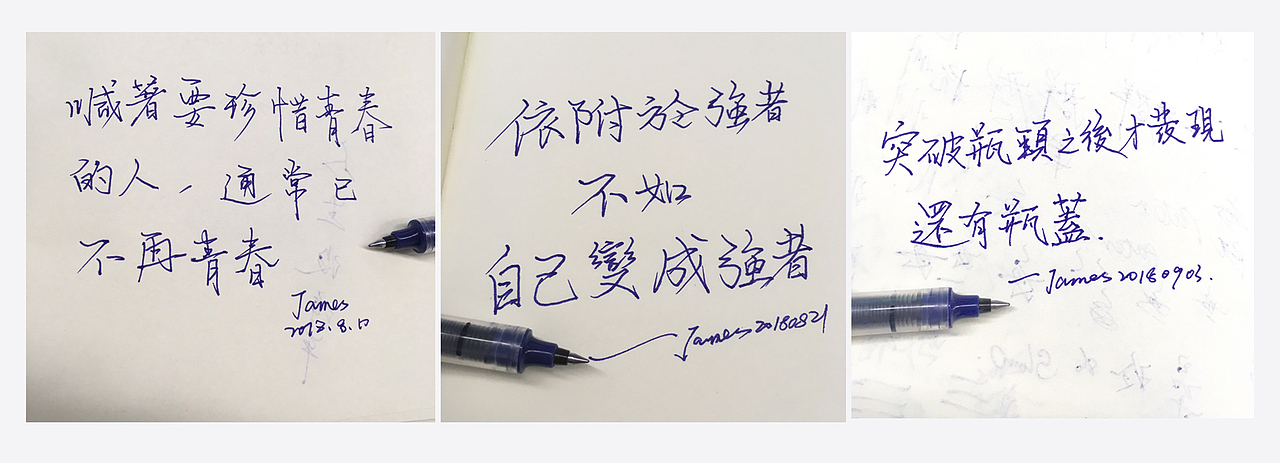 喊著要珍惜青春
的人，通常已
不再青春
James
2018.8.17
依附於強者
不如
自己變成強者
——James 20180821
突破瓶頸之後才發現
還有瓶蓋.
—James 20180903.